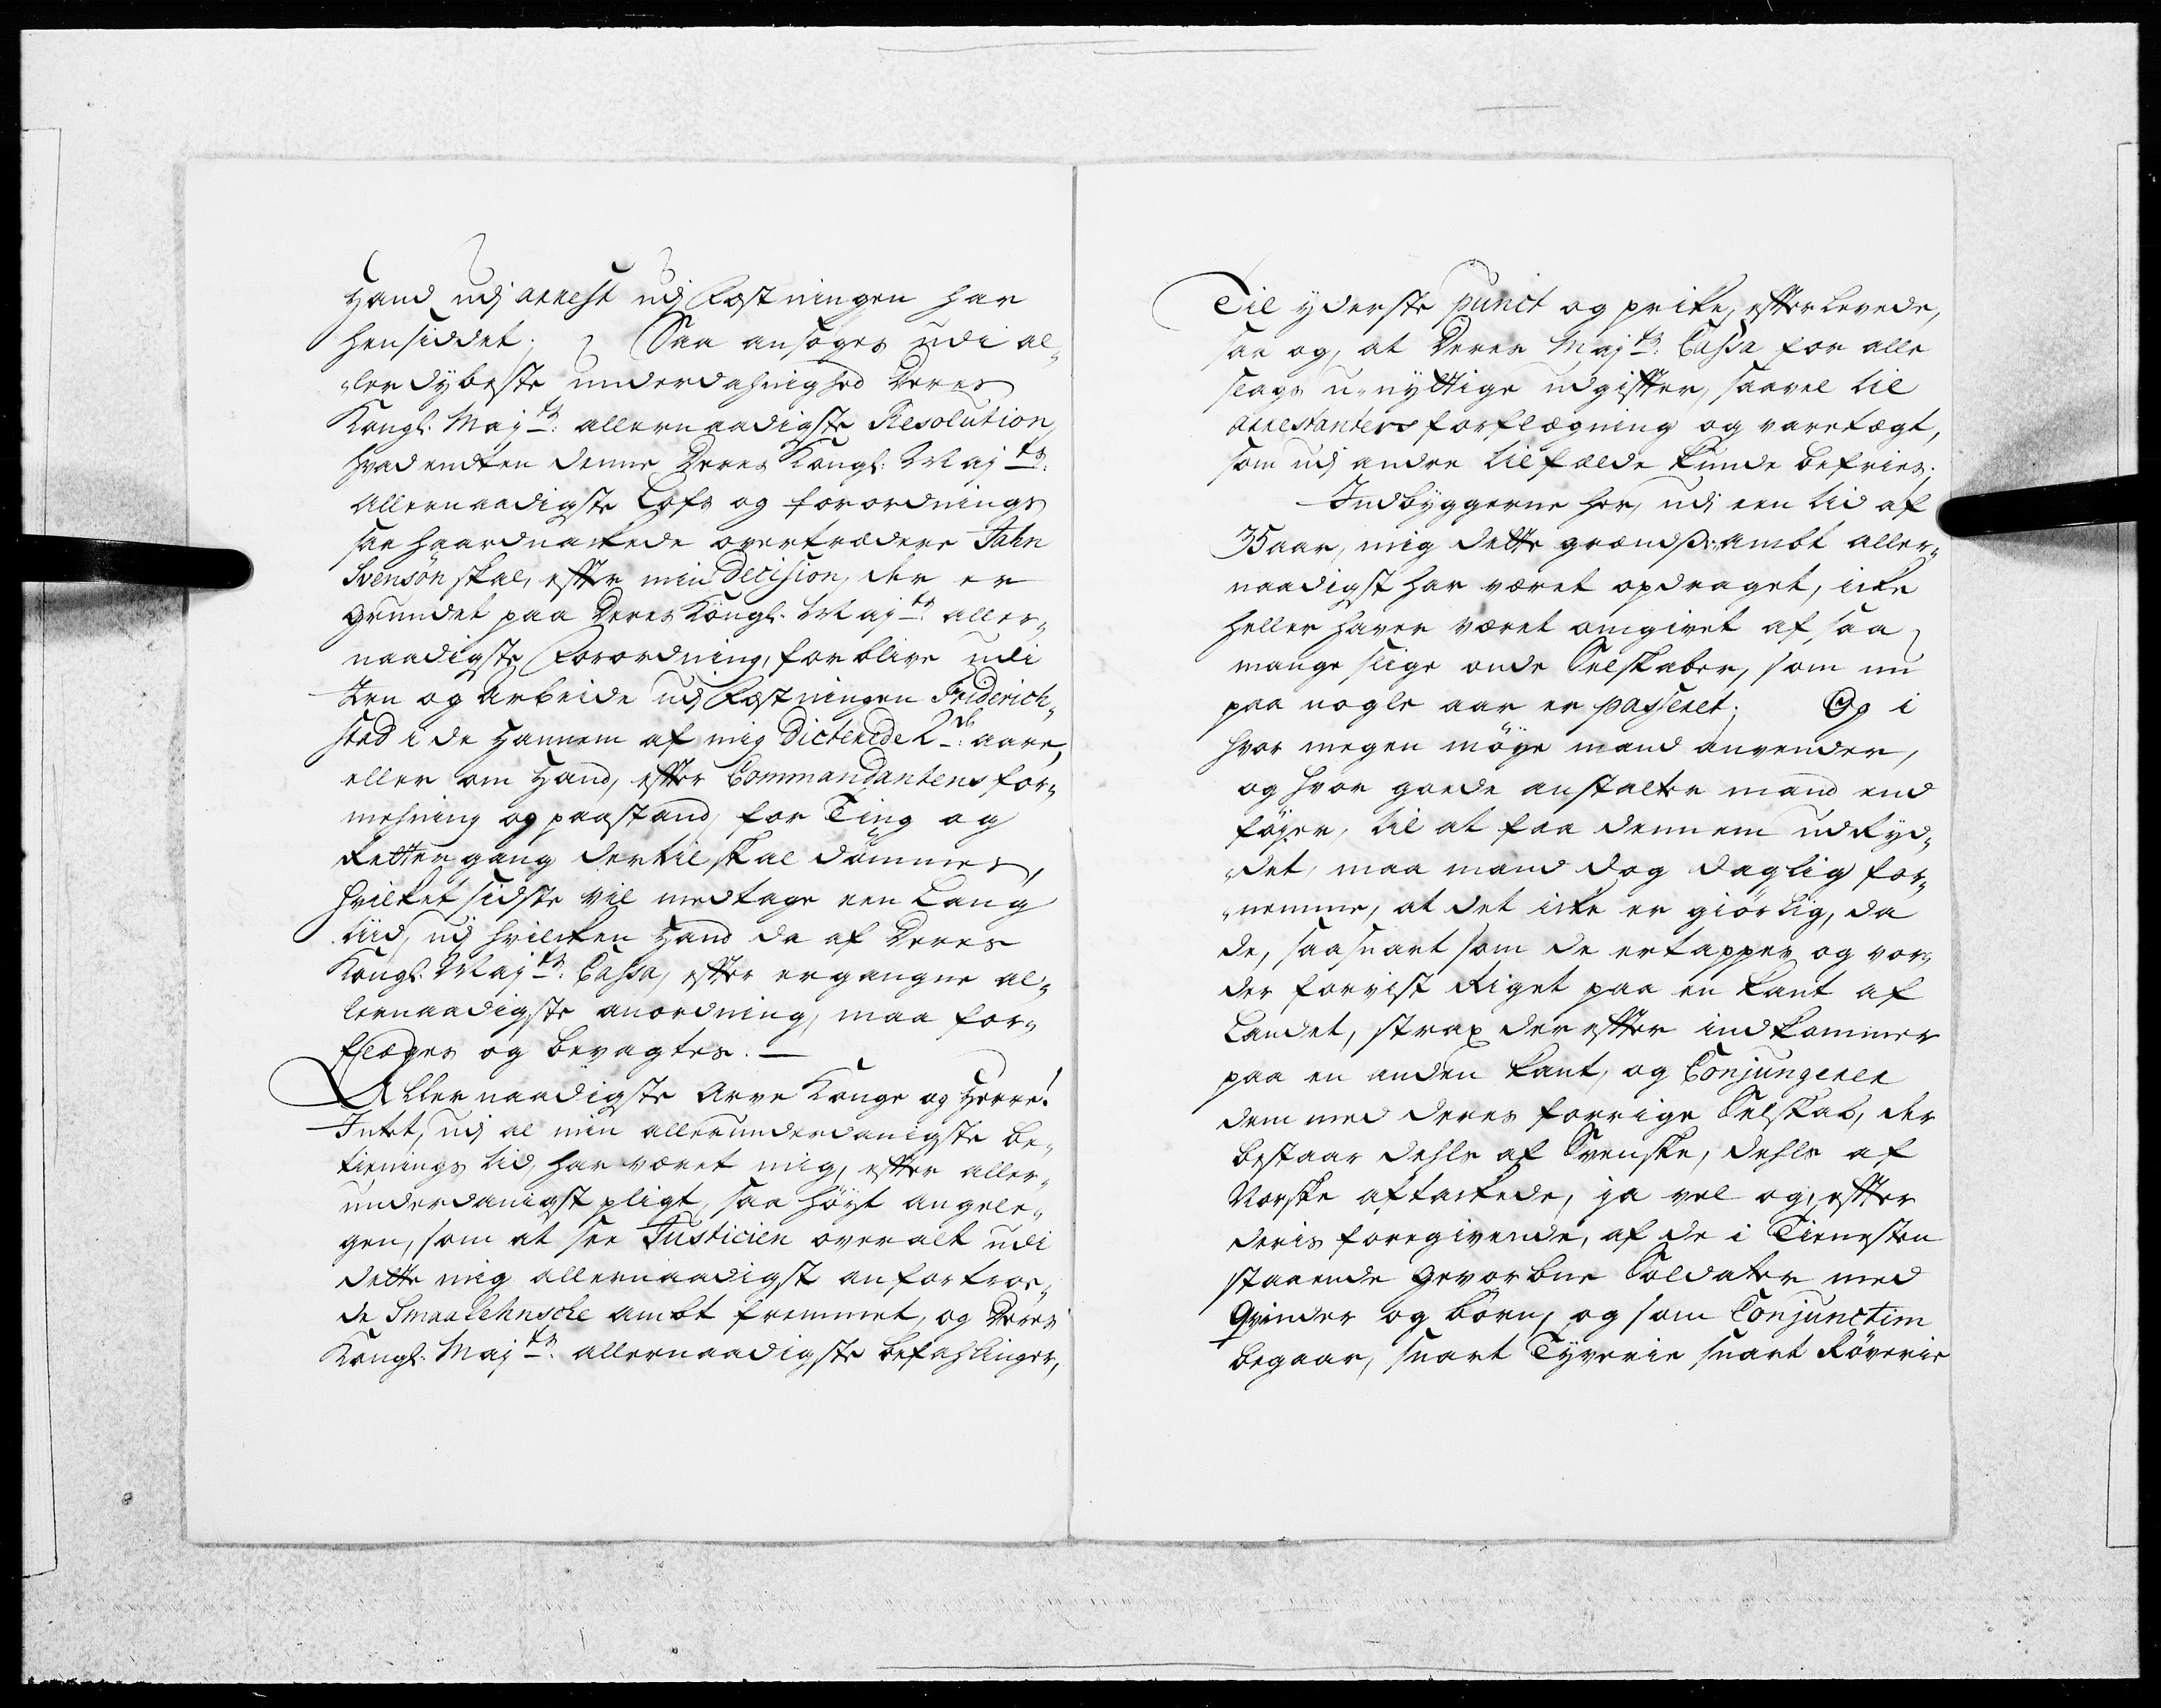 Hand udj arrest udj Fæstningen har
hensiddet; Saa ansøges udi al-
lerdybeste underdahnighed Deres
Kongl: Maj.ts: allernaadigste Resolution,
hvad endten denne Deres Kongl: Maj.ts:
Allernaadigste Lofs og forordnings
saa haardnackede overtrædere Jahn
Svensøn skal, effter min Decision, der er
grundet paa Deres Kongl. Maj.ts: aller-
naadigste Forordning, forblive udi
Jern og Arbeide udj Fæstningen Friderich-
stad i de Hannem af mig Dicterede 2de: aare,
eller om Hand, effter Commandantens for-
mehning og paastand, for Ting og
Rettergang dertil skal dømmes,
hvilket sidste vil medtage een Lang
tiid, udj hvilcken Hand da af Deres
Kongl. Maj.ts: Cassa, effter ergangne al-
lernaadigste anordning, maa for-
pflæges og bevagtes. —
Allernaadigste Arve Konge og Herre!
Intet, udj al min allerunderdanigste be-
tienings tid, har været mig, effter aller-
underdanigst pligt, saa høyt angele-
gen, som at see Justicien overalt udi
dette mig allernaadigst anfortroe-
de Smaalehnsche ambt fremmet, og Deres
Kongl. Maj.ts: allernaadigste befahlinger,
Til yderste punct og pricke, effterlevede,
saa og, at Deres Maj.ts: Cassa for alle
slags u-nyttige udgiffter, saavel til
arrestanters forpflægning og varetægt,
som udj andre tilfælde kunde befries;
Indbyggerne her, udj een tid af
35 aar, mig dette grændse-ambt aller-
naadigst har været opdraget, icke
heller haver været omgivet af saa
mange slige onde Selskaber, som nu
paa nogle aar er passeret; Og i
hvor megen møye mand anvender,
og hvor goede anstalter mand end
føyer, til at faa dennem udryd-
det, maa mand dog daglig for-
nemme, at det icke er giørlig, da
de, saasnart som de ertappes og vor-
der forvist Riget paa en kant af
Landet, strax dereffter indkommer
paa en anden kant, og Conjungerer
dem med deres forrige Selskab, der
bestaar dehls af Svenske, dehls af
Norske aftackede, ja vel og, effter
deris foregivende, af de i Tienesten
staaende gevorbne Soldater med
Qvinder og børn, og som Conjunctim
begaar, snart Tyverie snart Røverie